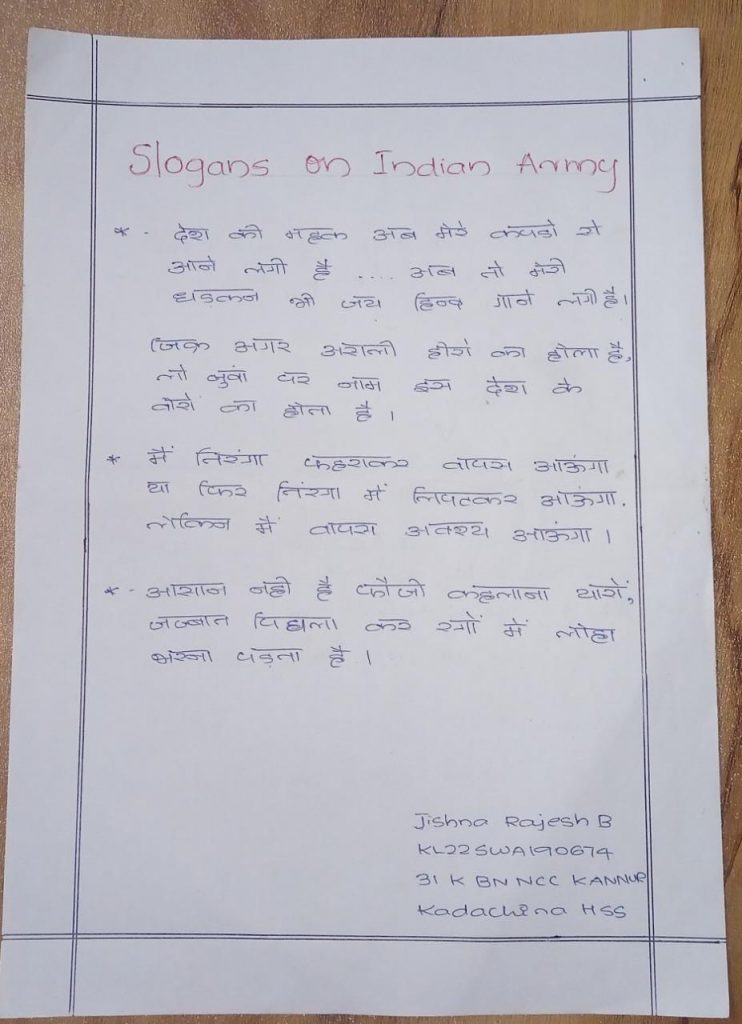 Slogans on Indian Army
* - देश की महक अब मेरे कपडो से
आने लगी है .... अब तो मेरी
धड़कन भी जय हिन्द गाने लगी है।
जिक्र अगर असली हीरो का होता है,
तो जुवां पर नाम इस देश के
वीरों का होता है ।
* मैं तिरंगा फहराकर वापस आऊंगा
या फिर तिंरगा में लिपटकर आऊंगा.
लेकिन मैं वापस अवश्य आऊंगा ।
* - आसान नही है फौजी कहलाना यारों,
जज्बात पिघला कर रगों में लोहा
भरना पड़ता है ।
Jishna Rajesh B
KL22SWA190674
31 K BN NCC KANNUR
Kadachira HSS